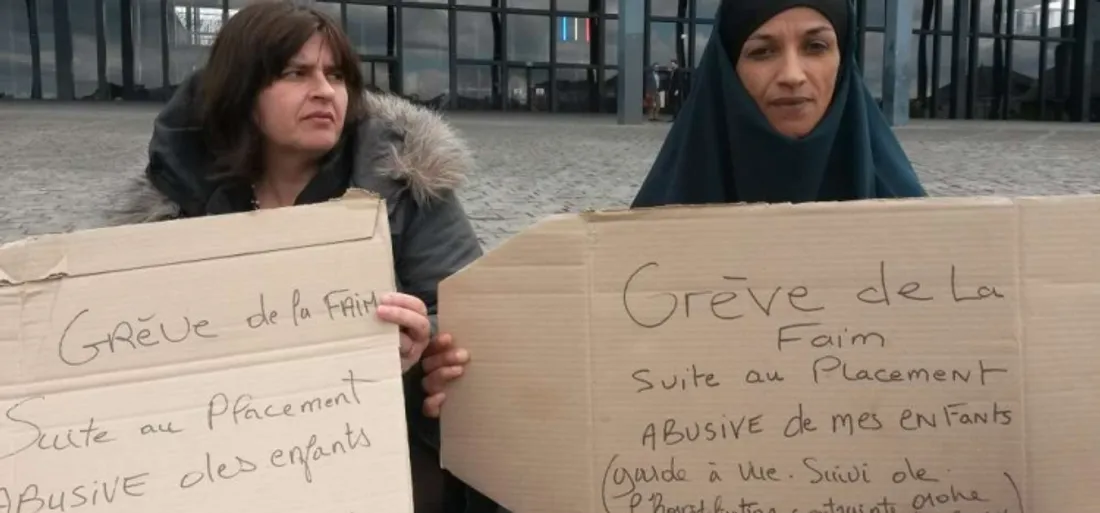 GRÈVE de la FAIM
Suite au Placement
ABUSIVE des enfants
Grève de La
Faim
Suite au Placement
ABUSIVE de mes enfants
(garde à vue. Suivi de